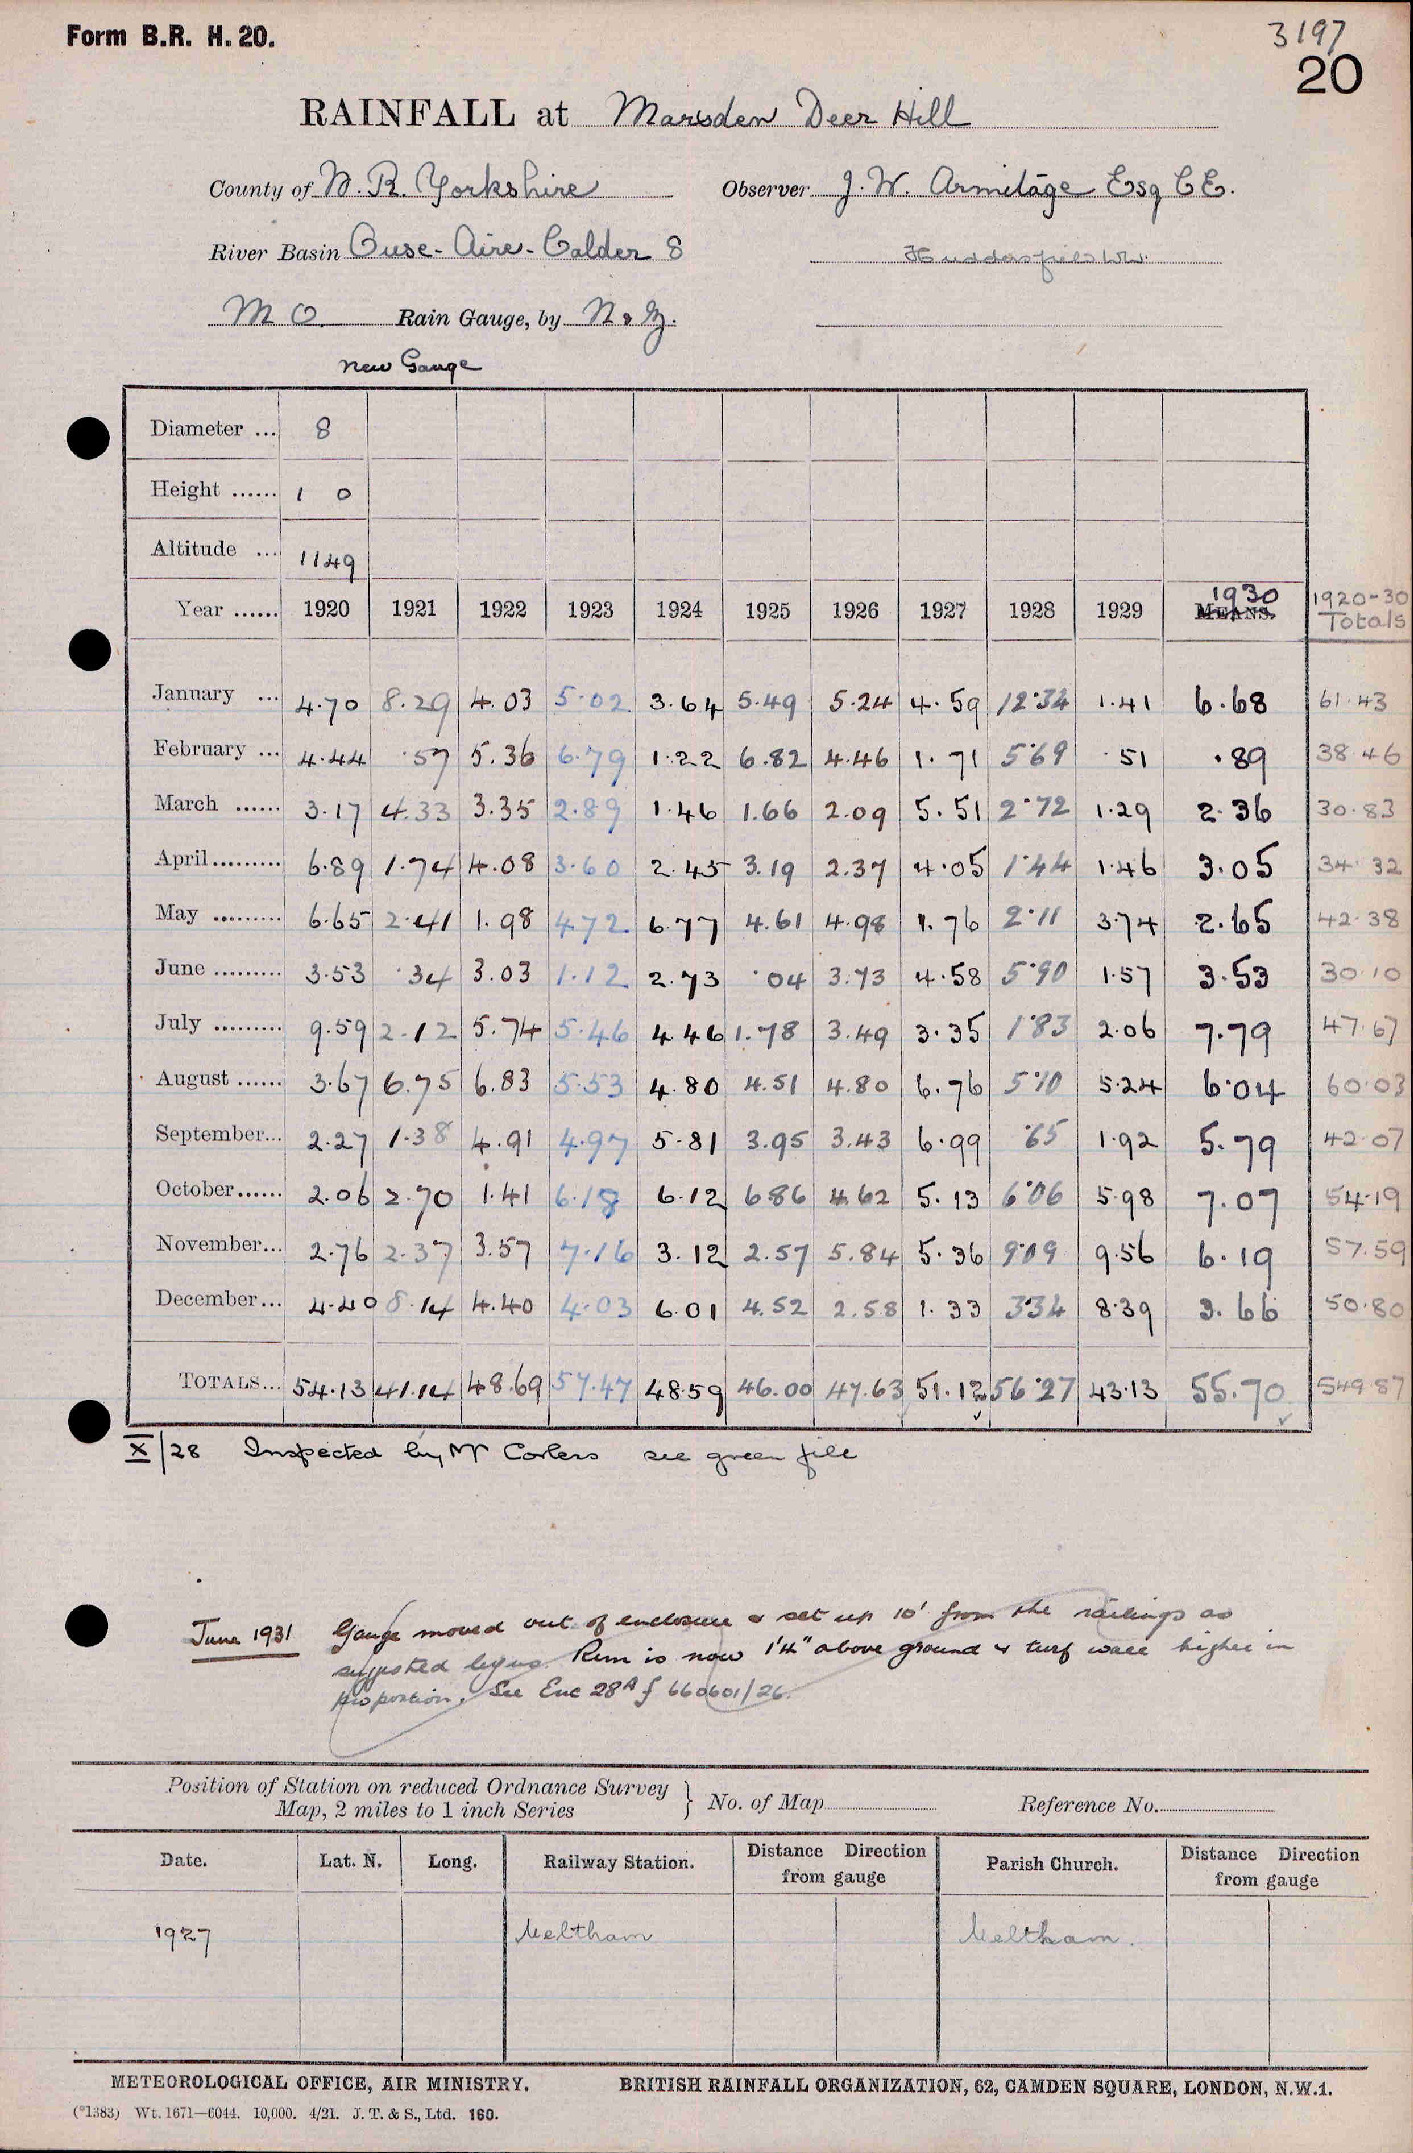 Form B.R. H. 20.
3197
20
RAINFALL at Marsden Deer Hill
County of W. R. Yorkshire Observer J. W. Armitage Esq C E.
River Basin Ouse - Aire - Calder 8 Huddersfield W.W.
M O Rain Gauge, by N & Z.
New Gauge
Diameter ... 8
Height ...... 1 0
Altitude ... 1149
Year ...... 1920 1921 1922 1923 1924 1925 1926 1927 1928 1929 MEANS. 1930 1920-30 Totals
January ... 4.70 8.29 4.03 5.02 3.64 5.49 5.24 4.59 12.34 1.41 6.68 61.43
February ... 4.44 .57 5.36 6.79 1.22 6.82 4.46 1.71 5.69 .51 .89 38.46
March ...... 3.17 4.33 3.35 2.89 1.46 1.66 2.09 5.51 2.72 1.29 2.36 30.83
April ......... 6.89 1.74 4.08 3.60 2.45 3.19 2.37 4.05 1.44 1.46 3.05 34.32
May ......... 6.65 2.41 1.98 4.72 6.77 4.61 4.98 1.76 2.11 3.74 2.65 42.38
June ......... 3.53 .34 3.03 1.12 2.73 .04 3.73 4.58 5.90 1.57 3.53 30.10
July ......... 9.59 2.12 5.74 5.46 4.46 1.78 3.49 3.35 1.83 2.06 7.79 47.67
August ...... 3.67 6.75 6.83 5.53 4.80 4.51 4.80 6.76 5.10 5.24 6.04 60.03
September... 2.27 1.38 4.91 4.97 5.81 3.95 3.43 6.99 .65 1.92 5.79 42.07
October...... 2.06 2.70 1.41 6.18 6.12 6.86 4.62 5.13 6.06 5.98 7.07 54.19
November... 2.76 2.37 3.57 7.16 3.12 2.57 5.84 5.36 9.09 9.56 6.19 57.59
December... 4.40 8.14 4.40 4.03 6.01 4.52 2.58 1.33 3.34 8.39 3.66 50.80
TOTALS... 54.13 41.14 48.69 57.47 48.59 46.00 47.63 51.12 56.27 43.13 55.70 549.87
X/28 Inspected by Mr see green file
June 1931 Gauge moved out of enclosure & set up 10' from the railings as
suggested Rim is now 1'4" above ground & turf wall higher in
proportion. See Enc 28A of 660601/26.
Position of Station on reduced Ordnance Survey
Map, 2 miles to 1 inch Series } No. of Map Reference No.
Date. Lat. N. Long. Railway Station. Distance Direction from gauge Parish Church. Distance Direction from gauge
1927 Meltham Meltham.
METEOROLOGICAL OFFICE, AIR MINISTRY. BRITISH RAINFALL ORGANIZATION, 62, CAMDEN SQUARE, LONDON, N.W.1.
(*1383) Wt. 1671—6044. 10,000. 4/21. J. T. & S., Ltd. 160.